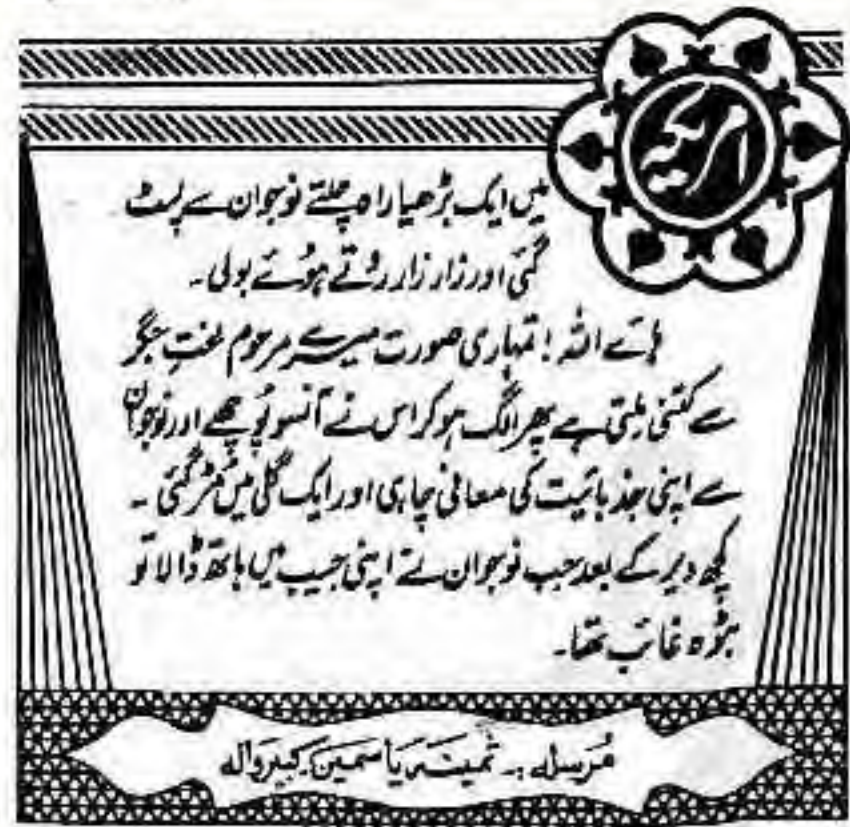 امریکہ
میں ایک بڑھیا راہ چلتے نوجوان سے لپٹ
گئی اور زار زار روتے ہوئے بولی۔
ہائے اللہ! تمہاری صورت میرے مرحوم لختِ جگر
سے کتنی ملتی ہے پھر الگ ہو کر اس نے آنسو پونچھے اور نوجوان
سے اپنی جذباتیت کی معافی چاہی اور ایک گلی میں مُڑ گئی۔
کچھ دیر کے بعد جب نوجوان نے اپنی جیب میں ہاتھ ڈالا تو
بٹوہ غائب تھا۔
مُرسلہ :۔ ثمینہ یاسمین۔ کبیروالہ